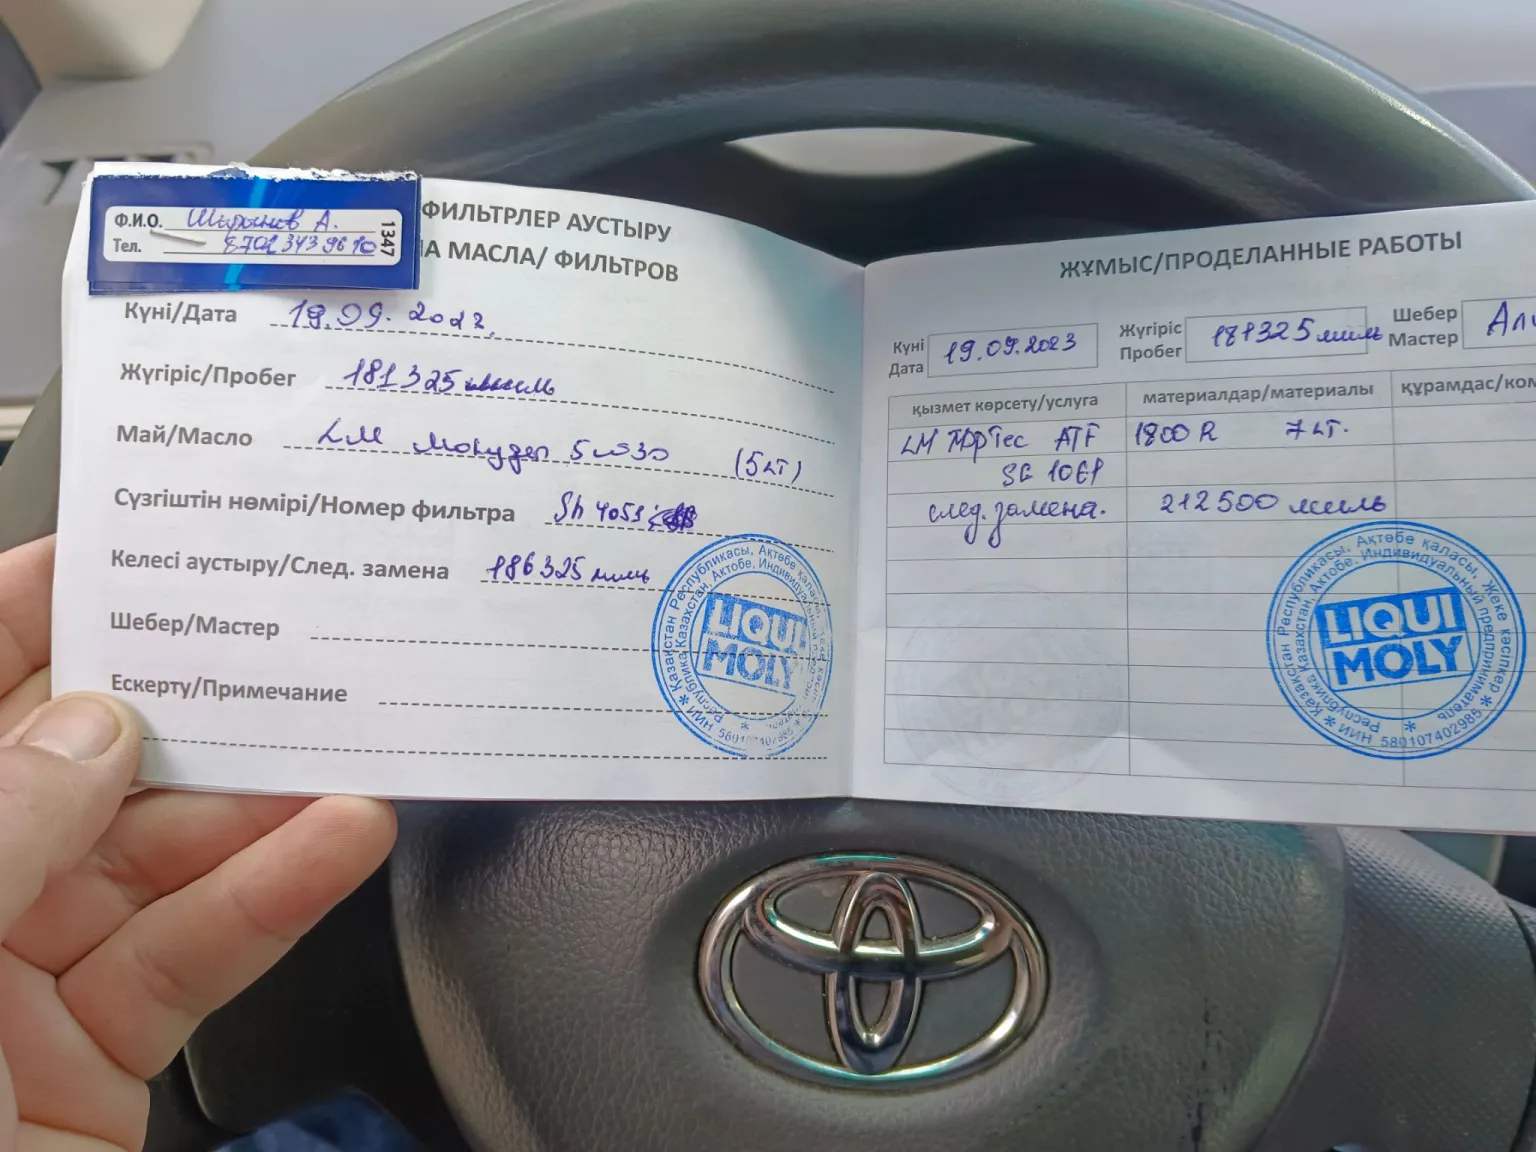 Ф.И.О. Ширянов А.
Тел. 8701 343 96 10
1347
ФИЛЬТРЛЕР АУСТЫРУ
НА МАСЛА/ ФИЛЬТРОВ
Күні/Дата 19.09.2023
Жүгіріс/Пробег 181325 миль
Май/Масло LM Молиген 5w30 (5 LT)
Сүзгіштін нөмірі/Номер фильтра Sh 4051
Келесі аустыру/След. замена 186325 миль
Шебер/Мастер
Ескерту/Примечание
LIQUI
MOLY
Қазақстан Республикасы, Ақтөбе қаласы
Республика Казахстан, г. Актобе, Индивидуальный
ЖҰМЫС/ПРОДЕЛАННЫЕ РАБОТЫ
Күні
Дата 19.09.2023
Жүгіріс
Пробег 181325 миль
Шебер
Мастер
қызмет көрсету/услуга материалдар/материалы құрамдас/ком
LM TopTec ATF 1800 R 7 LT.
SG 10EP
след. замена. 212500 миль
LIQUI
MOLY
Қазақстан Республикасы, Ақтөбе қаласы, Жеке кәсіпкер * ИИН 580107402985 *
Республика Казахстан, г. Актобе, Индивидуальный предприниматель *